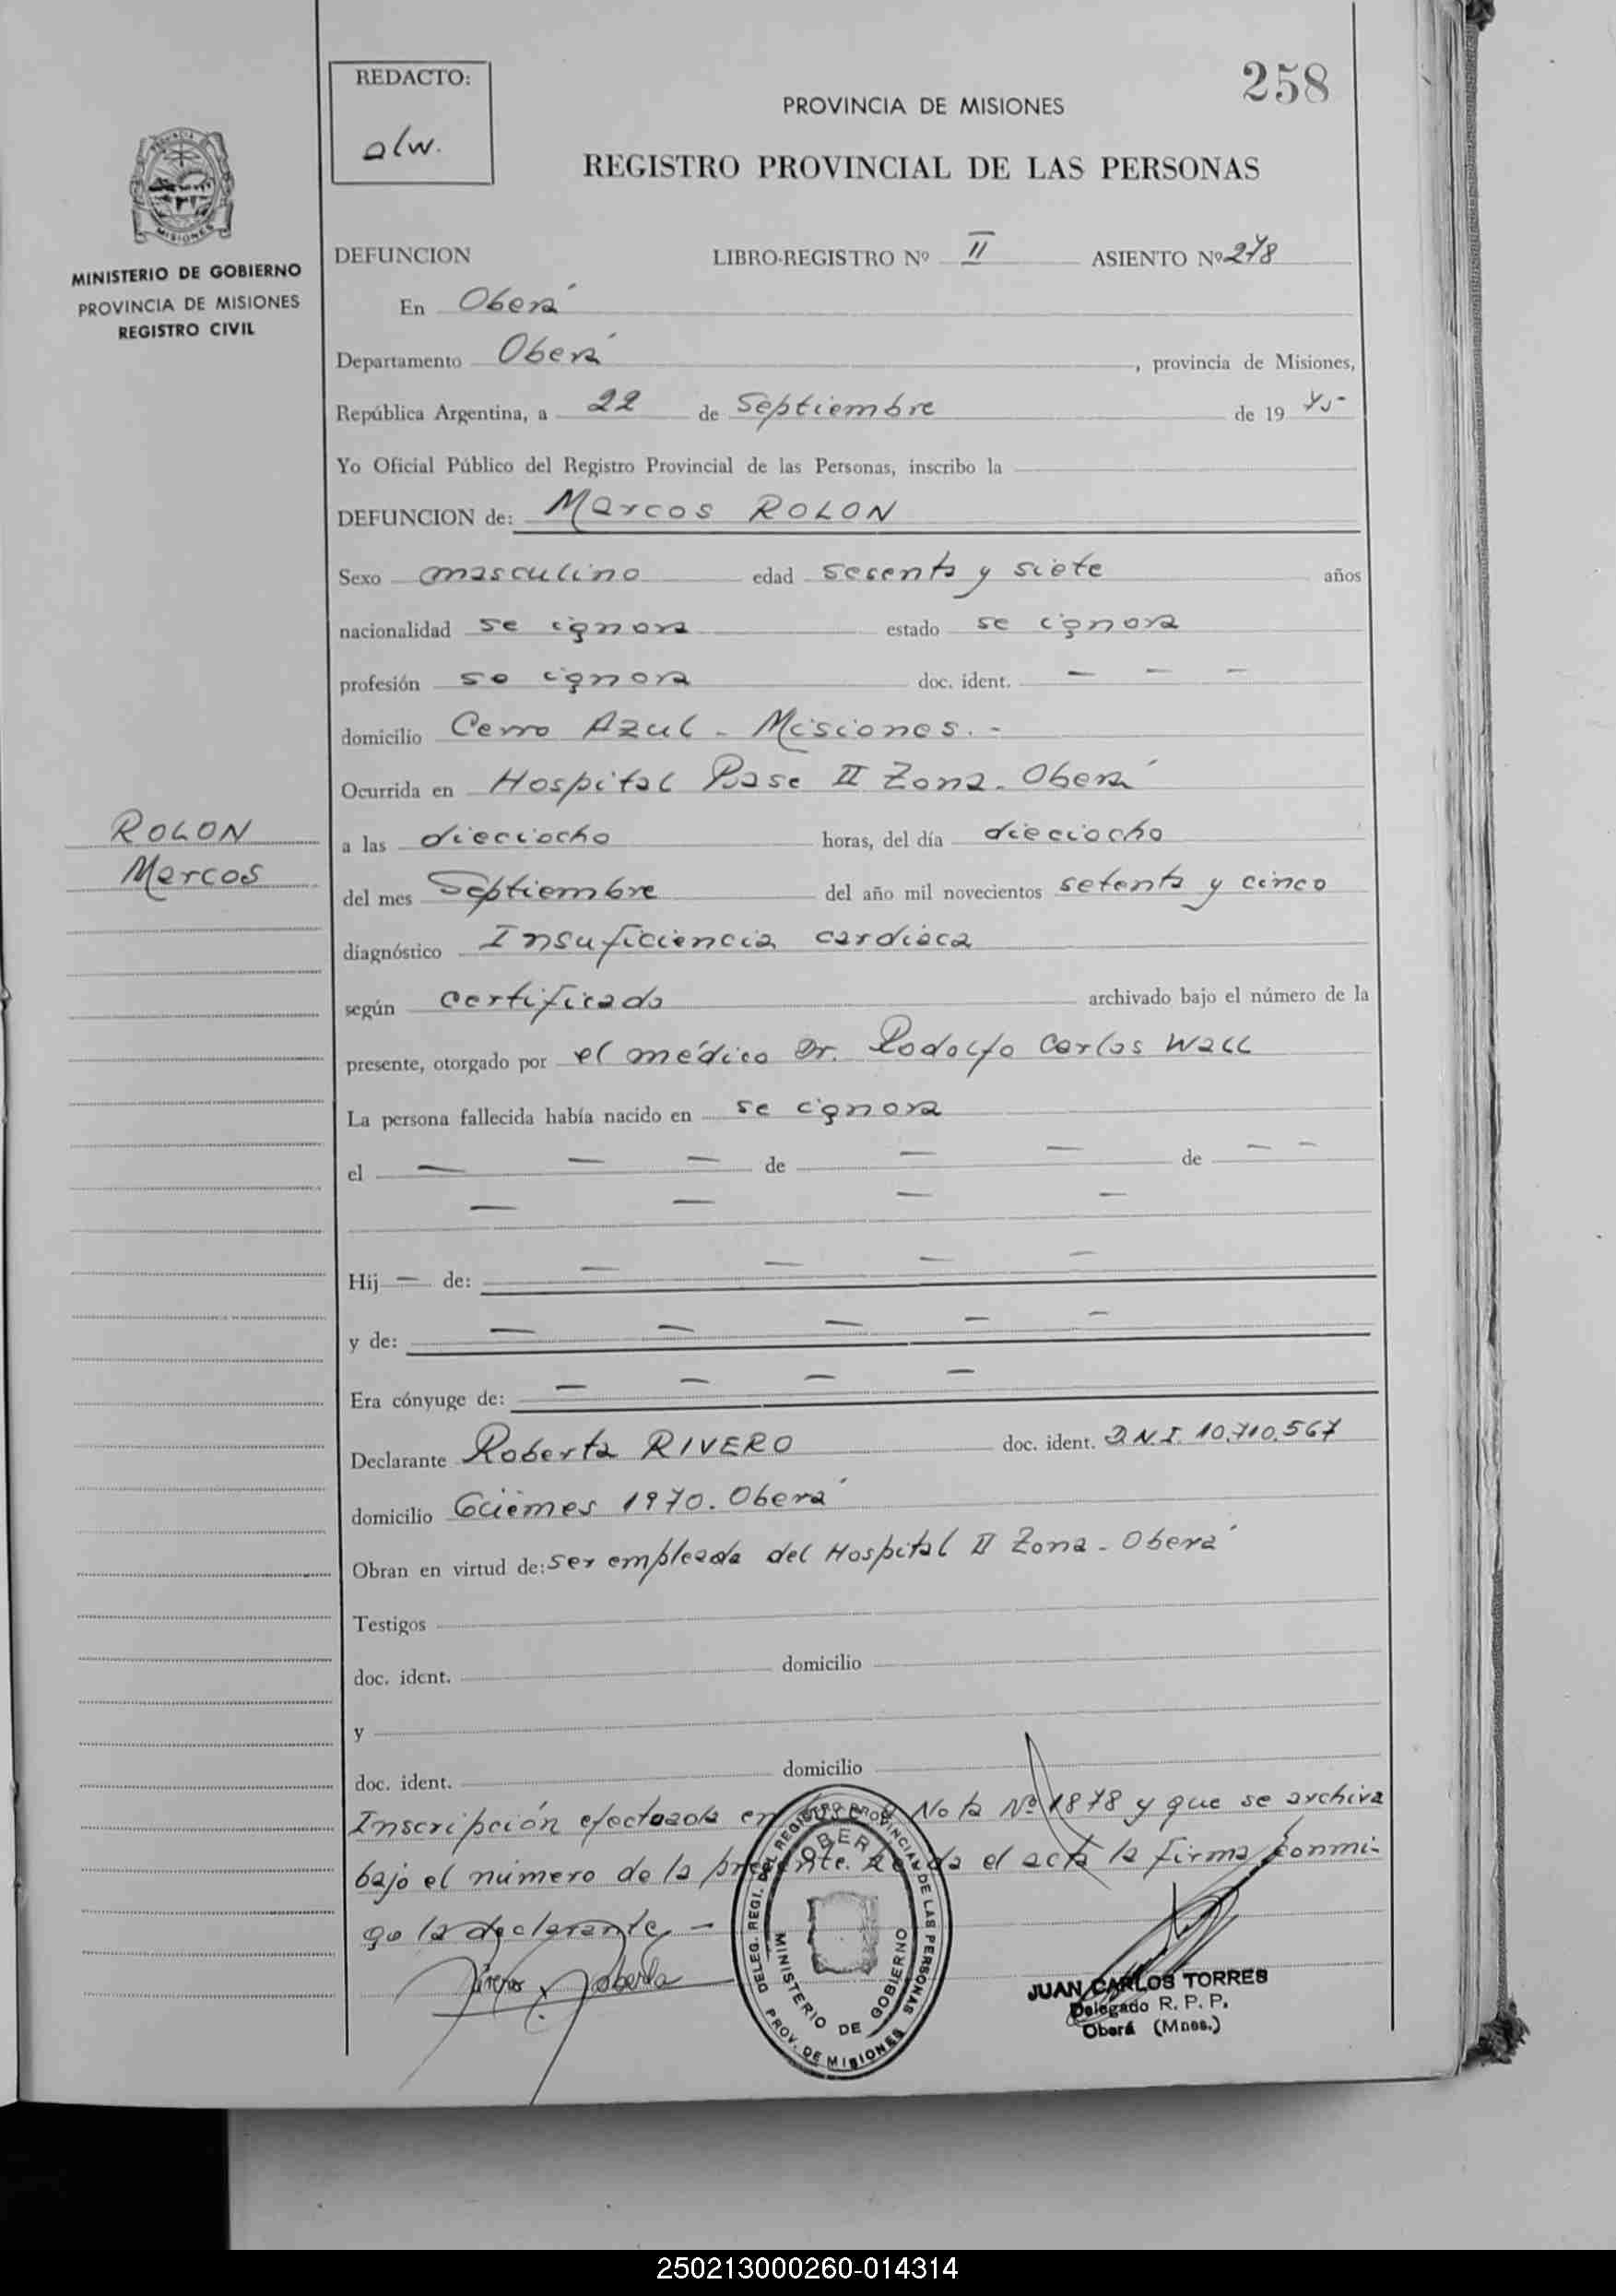 REDACTO:
alw.
258
PROVINCIA DE MISIONES
REGISTRO PROVINCIAL DE LAS PERSONAS
PROVINCIA
MISIONES
MINISTERIO DE GOBIERNO
PROVINCIA DE MISIONES
REGISTRO CIVIL
DEFUNCION LIBRO-REGISTRO Nº II ASIENTO Nº 278
En Oberá
Departamento Oberá, provincia de Misiones,
República Argentina, a 22 de Septiembre de 19 75-
Yo Oficial Público del Registro Provincial de las Personas, inscribo la
DEFUNCION de: Marcos ROLON
Sexo masculino edad sesenta y siete años
nacionalidad se ignora estado se ignora
profesión se ignora doc. ident. — — —
domicilio Cerro Azul - Misiones. -
Ocurrida en Hospital Base II Zona - Oberá
ROLON
Marcos
a las dieciocho horas, del día dieciocho
del mes Septiembre del año mil novecientos setenta y cinco
diagnóstico Insuficiencia cardiaca
según certificado archivado bajo el número de la
presente, otorgado por el médico Dr. Rodolfo Carlos Wall
La persona fallecida había nacido en se ignora
el — — — de — — de — —
— — — —
Hij — de: — — — —
y de: — — — — —
Era cónyuge de: — — — —
Declarante Roberta RIVERO doc. ident. D.N.I. 10.710.567
domicilio Güemes 1970. Oberá
Obran en virtud de: ser empleada del Hospital II Zona - Oberá
Testigos
doc. ident. domicilio
y
doc. ident. domicilio
Inscripción efectuada en Nota Nº 1878 y que se archiva
bajo el número de la presente. el acta la firma conmi-
go la declarante -
Roberta
DELEG. REGI. DEL REGISTRO PROVINCIAL DE LAS PERSONAS
OBERA
MINISTERIO DE GOBIERNO
PROV. DE MISIONES
JUAN CARLOS TORRES
Delegado R. P. P.
Oberá (Mnes.)
250213000260-014314